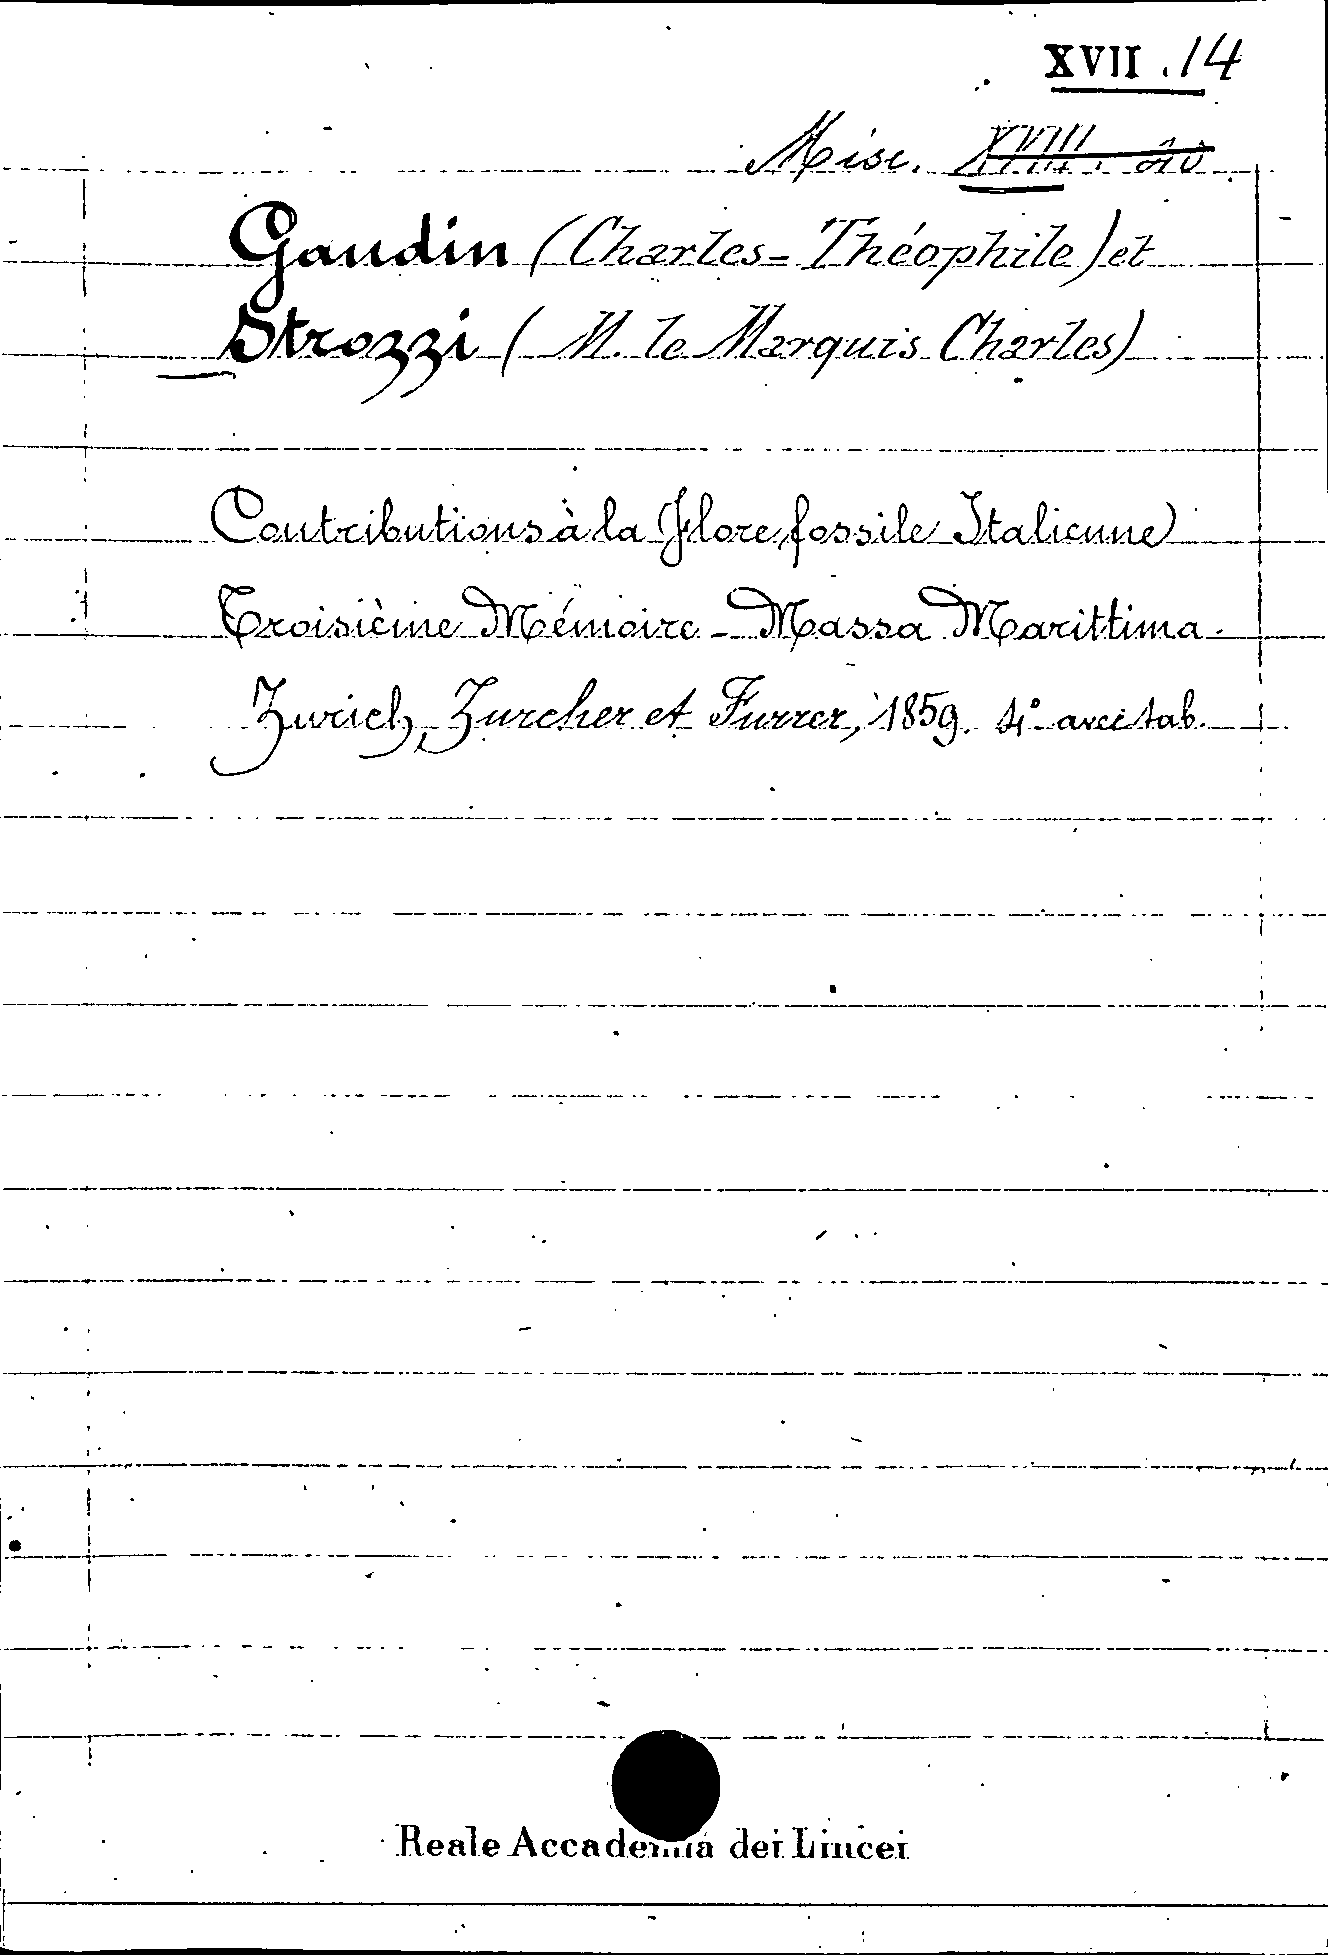 XVII . 14
Misc. XVIII. 20
Gaudin (Charles-Théophile) et
Strozzi (M. le Marquis Charles)
Contributions à la Flore fossile Italienne
Troisième Mémoire - Massa Marittima.
Zurich, Zurcher et Furrer, 1859. 4° avec tab.
Reale Accademia dei Lincei